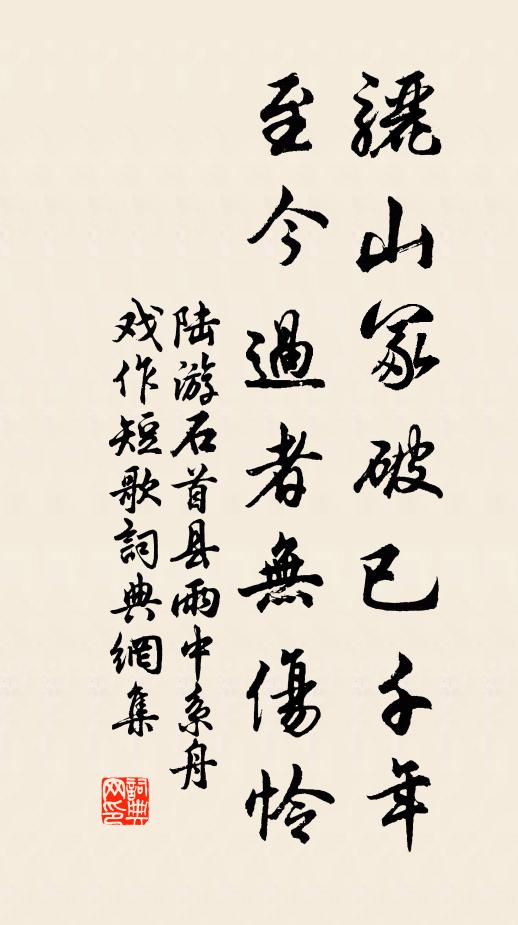 驪山冢破已千年
至今過者無傷怜
陆游石首县雨中系舟
戏作短歌詞典網集
詞典
网印